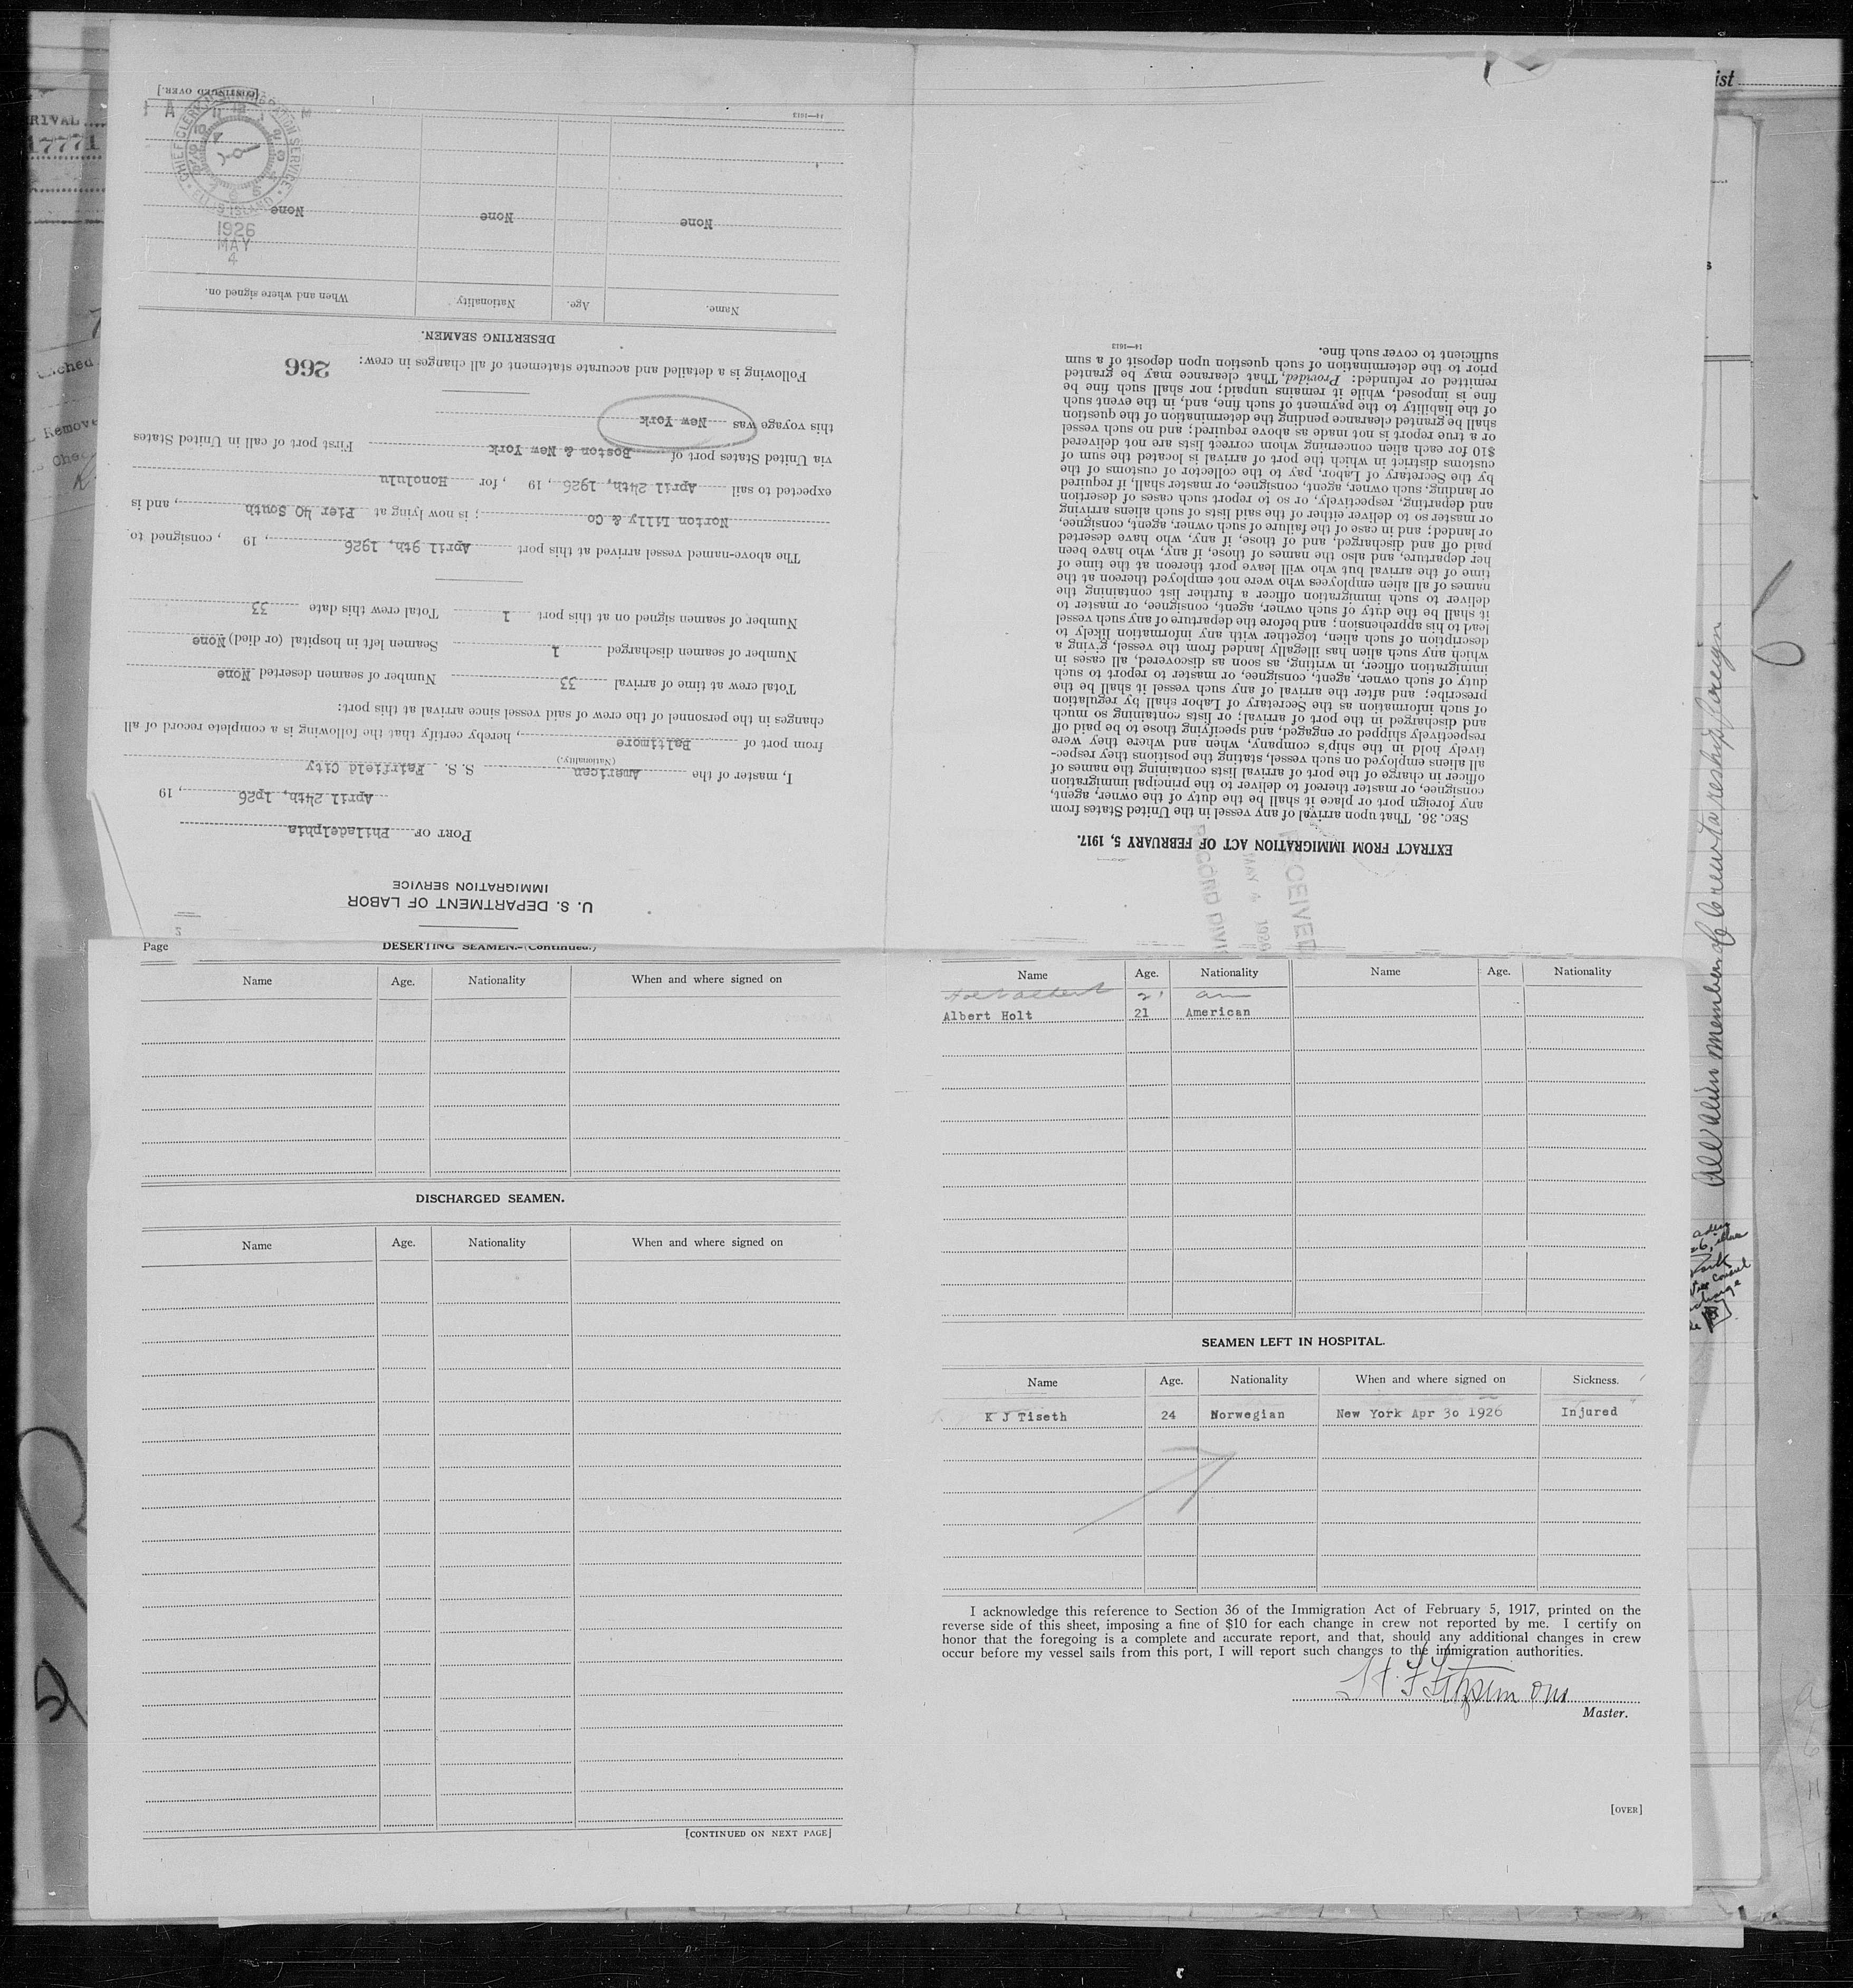 U. S. DEPARTMENT OF LABOR
IMMIGRATION SERVICE
PORT OF Philadelphia
April 24th, 1p26, 19
I, master of the American S.S. Fairfield City
(Nationality.)
from port of Baltimore, hereby certify that the following is a complete record of all
changes in the personnel of the crew of said vessel since arrival at this port:
Total crew at time of arrival 33 Number of seamen deserted None
Number of seamen discharged 1 Seamen left in hospital (or died) None
Number of seamen signed on at this port 1 Total crew this date 33
The above-named vessel arrived at this port April 9th, 1926, 19 , consigned to
Norton Lilly & Co ; is now lying at Pier 40 South, and is
expected to sail April 24th, 1926, 19 , for Honolulu
via United States port of Boston & New York First port of call in United States
this voyage was New York
Following is a detailed and accurate statement of all changes in crew:
266
DESERTING SEAMEN.
Name. Age. Nationality When and where signed on.
None None None
14—1613
[CONTINUED OVER.]
CHIEF CLERK IMMIGRATION SERVICE
ELLIS ISLAND
1926
MAY
4
EXTRACT FROM IMMIGRATION ACT OF FEBRUARY 5, 1917.
SEC. 36. That upon arrival of any vessel in the United States from
any foreign port or place it shall be the duty of the owner, agent,
consignee, or master thereof to deliver to the principal immigration
officer in charge of the port of arrival lists containing the names of
all aliens employed on such vessel, stating the positions they respec-
tively hold in the ship's company, when and where they were
respectively shipped or engaged, and specifying those to be paid off
and discharged in the port of arrival; or lists containing so much
of such information as the Secretary of Labor shall by regulation
prescribe; and after the arrival of any such vessel it shall be the
duty of such owner, agent, consignee, or master to report to such
immigration officer, in writing, as soon as discovered, all cases in
which any such alien has illegally landed from the vessel, giving a
description of such alien, together with any information likely to
lead to his apprehension; and before the departure of any such vessel
it shall be the duty of such owner, agent, consignee, or master to
deliver to such immigration officer a further list containing the
names of all alien employees who were not employed thereon at the
time of the arrival but who will leave port thereon at the time of
her departure, and also the names of those, if any, who have been
paid off and discharged, and of those, if any, who have deserted
or landed; and in case of the failure of such owner, agent, consignee,
or master so to deliver either of the said lists of such aliens arriving
and departing, respectively, or so to report such cases of desertion
or landing, such owner, agent, consignee, or master shall, if required
by the Secretary of Labor, pay to the collector of customs of the
customs district in which the port of arrival is located the sum of
$10 for each alien concerning whom correct lists are not delivered
or a true report is not made as above required; and no such vessel
shall be granted clearance pending the determination of the question
of the liability to the payment of such fine, and, in the event such
fine is imposed, while it remains unpaid; nor shall such fine be
remitted or refunded: Provided, That clearance may be granted
prior to the determination of such question upon deposit of a sum
sufficient to cover such fine.
14—1613
RECEIVED
MAY 4 1926
RECORD DIVI
Page DESERTING SEAMEN.—(Continued.)
Name Age. Nationality When and where signed on
DISCHARGED SEAMEN.
Name Age. Nationality When and where signed on
[CONTINUED ON NEXT PAGE]
Name Age. Nationality Name Age. Nationality
Holt albert 21 am
Albert Holt 21 American
SEAMEN LEFT IN HOSPITAL.
Name Age. Nationality When and where signed on Sickness.
K J Tiseth 24 Norwegian New York Apr 30 1926 Injured
I acknowledge this reference to Section 36 of the Immigration Act of February 5, 1917, printed on the
reverse side of this sheet, imposing a fine of $10 for each change in crew not reported by me. I certify on
honor that the foregoing is a complete and accurate report, and that, should any additional changes in crew
occur before my vessel sails from this port, I will report such changes to the immigration authorities.
H. F Fitzsimons
Master.
[OVER]
RIVAL
17771
ist
All alien members of Crew to reship foreign